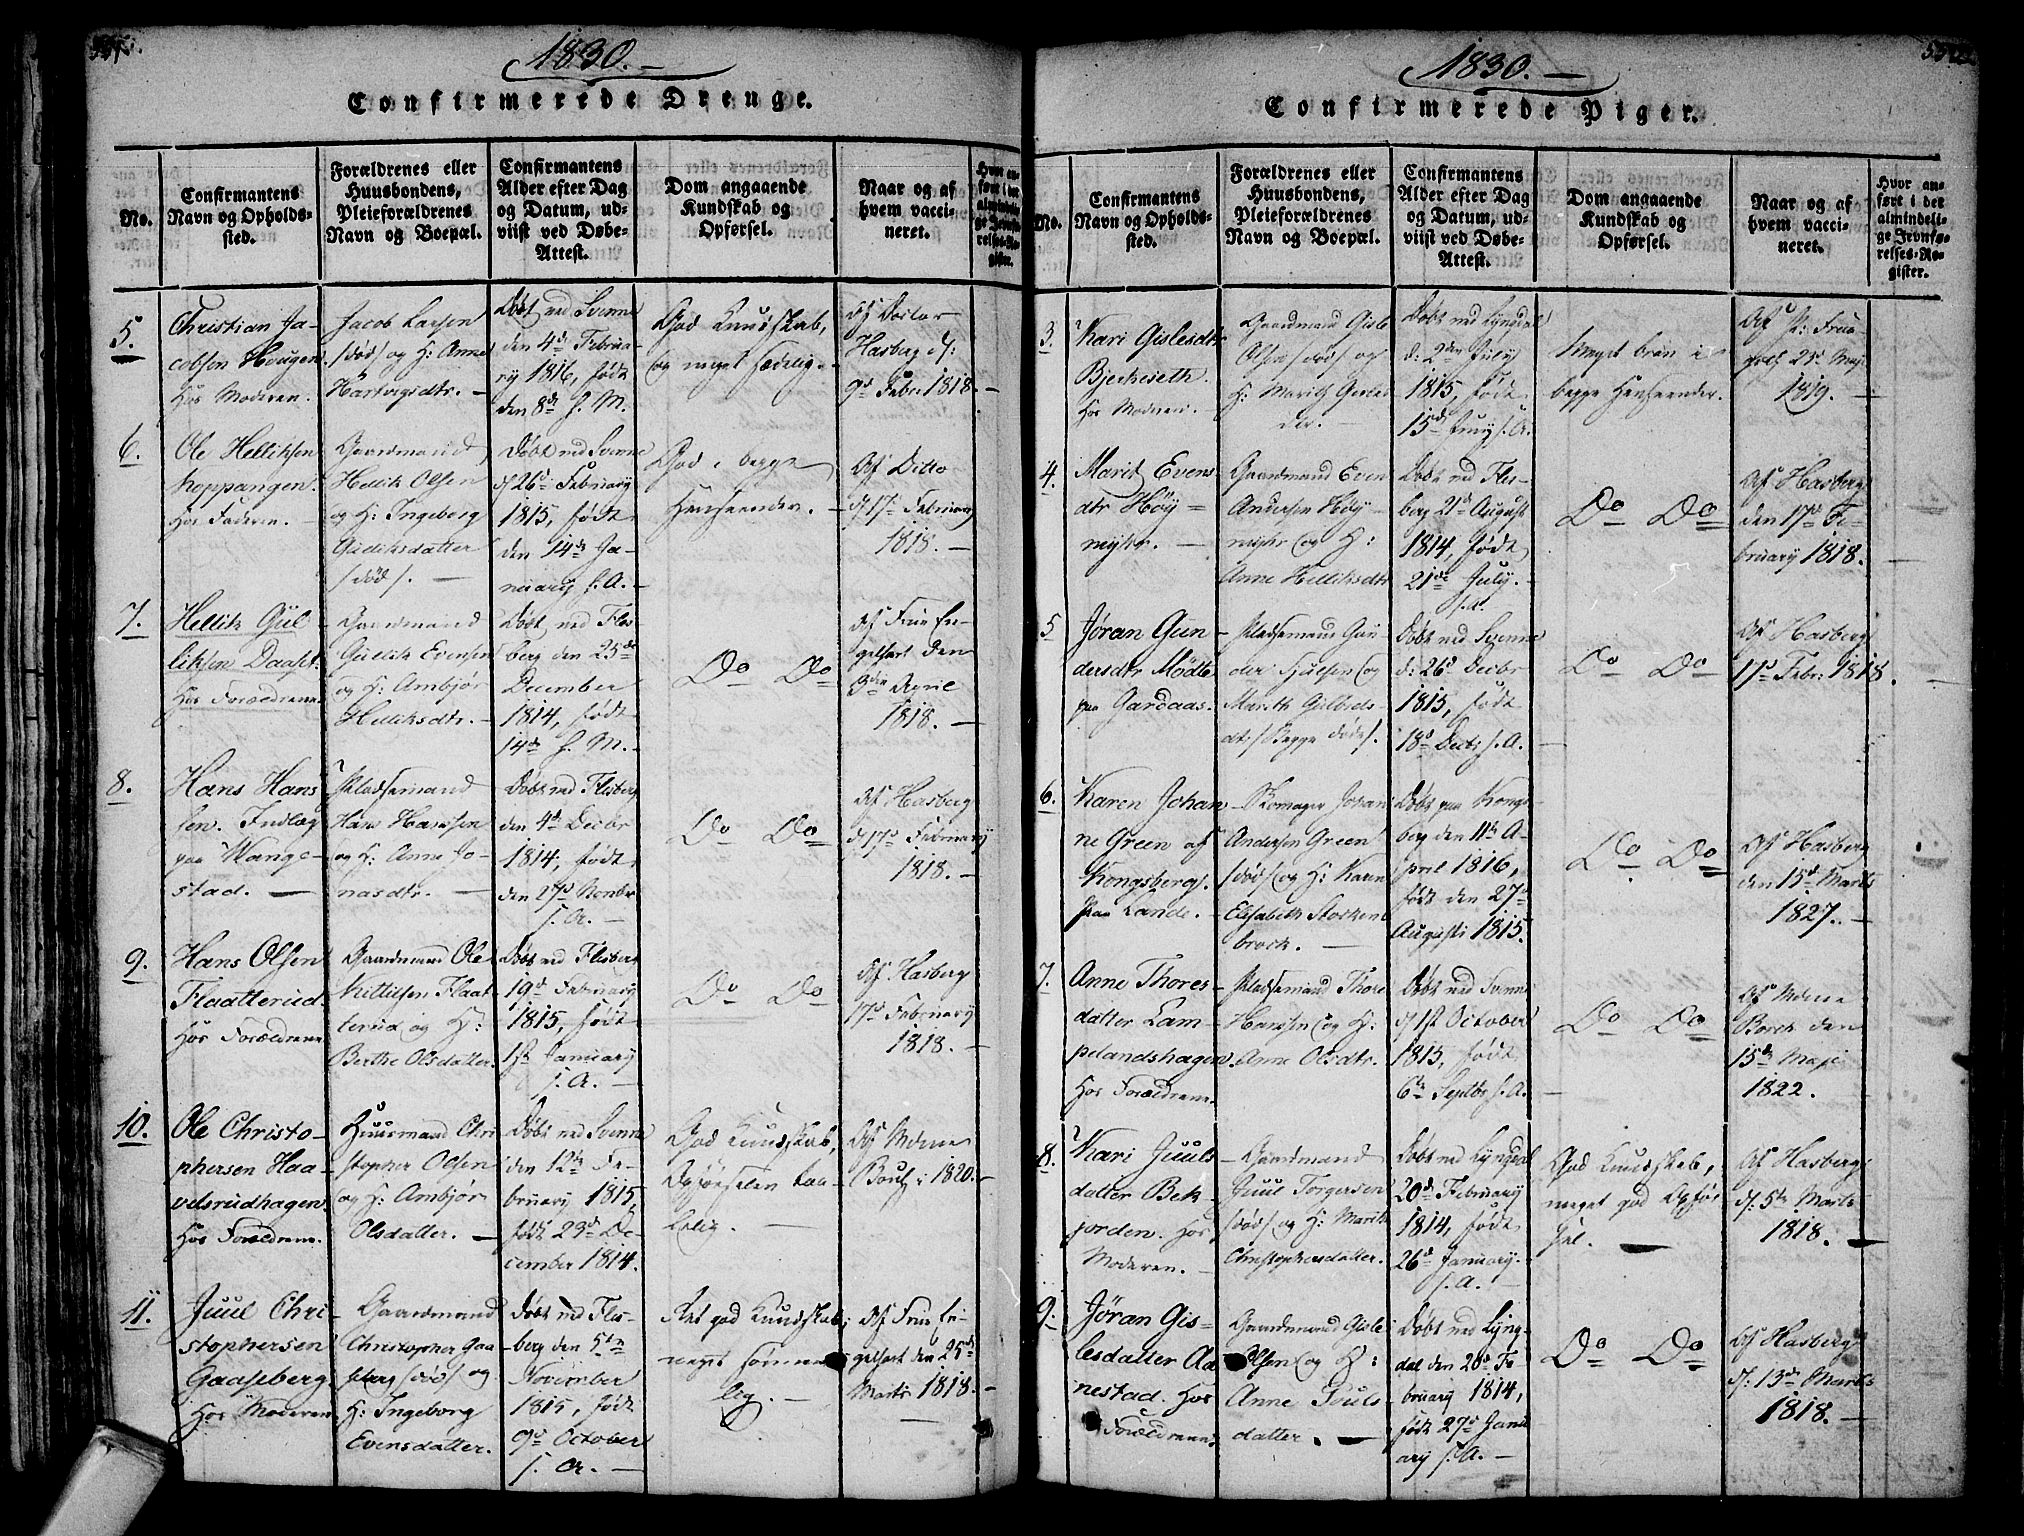 1830.
Confirmerede Drenge.
No.
Confirmantens
Navn og Opholds-
sted.
Forældrenes eller
Huusbondens,
Pleieforældrenes
Navn og Boepæl.
Confirmantens
Alder efter Dag
og Datum, ud-
viist ved Døbe-
Attest.
Dom angaaende
Kundskab og
Opførsel.
Naar og af
hvem vacci-
neret.
Hvor an-
ført i det
almindeli-
ge Jevnfø-
relses-Re-
gister.
5.
Christian Ja-
cobsen Hougen
Hos Moderen.
Jacob Larsen
/død/ og H: Anne
Hartvigsdtr. -
Døbt ved Svenne
den 4de Februa-
ry 1816, født
den 8de s. M.
God Kundskab,
og meget sædelig. -
Af Doctor
Hasberg d:
9d Febr: 1818. -
6.
Ole Helliksen
Koppangen.
Hos Faderen. -
Gaardmand
Hellik Olsen
og H: Ingeberg
Gudiksdatter
/død/. -
Døbt ved Svenne
d 26d February
1815, født
den 14de Ja-
nuary s. A. -
God i begge
Henseender. -
Af Ditto
d 17d February
1818. -
7.
Hellik Gul-
liksen Daaset.
Hos Forældrene.
Gaardmand
Gullik Evensen
og H: Ambjør
Helliksdtr. -
Døbt ved Fles-
berg den 25de
December
1814, født
14de s. M. -
Do Do
Af Frue En-
gelhart den
3den April
1818. -
8.
Hans Hans-
sen. Indlæg
paa Wange-
stad. -
Pladsemand
Hans Hanssen
og H: Anne Jo-
nasdtr. -
Døbt ved Flesberg
den 4de Decbr
1814, født
den 27d Novbr
s. A. -
Do Do
Af Hasberg
d 17d February
1818. -
9.
Hans Olsen
Flaatterud.
Hos Forældrene
Gaardmand Ole
Kittilsen Flaat-
terud og H:
Berthe Olsdatter.
Døbt ved Flesberg
19d February
1815, født
1st January
s. A. -
Do Do
Af Hasberg
17d February
1818. -
10.
Ole Christo-
phersen Haa-
velsrudhagen
Hos Forældrene.
Huusmand Chri-
stopher Olsen
og H: Ambjør
Olsdatter. -
Døbt ved Svenne
den 12te Fe-
bruary 1815,
født 29d De-
cember 1814.
God Kundskab,
Opførselen taa-
lelig. -
Af Mdme
i 1820. -
11.
Juul Chri-
stophersen
Gaaseberg.
Hos Moderen.
Gaardmand
Christopher Gaa-
seberg /død/ og
H: Ingeborg
Evensdatter.
Døbt ved Fles-
berg den 5te
November
1815, født
9d October
s. A. -
Ret god Kundskab,
meget
lig. -
Af Frue En-
gelhart den 25de
Marts 1818. -
1830. -
Confirmerede Piger.
No.
Confirmantens
Navn og Opholds-
sted.
Forældrenes eller
Huusbondens,
Pleieforældrenes
Navn og Boepæl.
Confirmantens
Alder efter Dag
og Datum, ud-
viist ved Døbe-
Attest.
Dom angaaende
Kundskab og
Opførsel.
Naar og af
hvem vacci-
neret.
Hvor an-
ført i det
almindeli-
ge Jevnfø-
relses-Re-
gister.
3.
Kari Gislesdtr
Bjerkeseth.
Hos Moderen.
Gaardmand Gisle
Olsen /død/ og
H: Marith
Døbt ved Lyngdal
d: 2den July
1815, født
15de Juny s. A.
Meget brav i
begge Henseender.
Af
23d May
1819. -
4.
Marit Evens-
dtr Høy-
myhr. -
Gaardmand Even
Andersen Høy-
myhr og H:
Anne Helliksdtr
Døbt ved Fles-
berg 21d August
1814, født
21de July.
s. A.
Do Do
Af Hasberg
den 17de Fe-
bruary 1818. -
5
Jøran Gun-
dersdtr Mødte
paa Gardaas.
Pladsemand Gun-
der Tjulsen og
Marith Gulbrds-
dtr /Begge døde/.
Døbt ved Svenne
d: 26d Decbr
1815, født
18d Decbr s. A. -
Do Do
Af Hasberg
17d Febr: 1818. -
6.
Karen Johan-
ne Green af
Kongsberg.
Paa Lande. -
Skomager Johan
Andersen Green
/død/ og H: Karen
Elisabeth Stocken-
brock. -
Døbt paa Kongs-
berg den 11te A-
pril 1816,
født den 27de
Augusti 1815.
Do Do
Af Hasberg
den 15de Marts
1827. -
7.
Anne Thores-
datter Lam-
pelandshagen.
Hos Forældrene
Pladsemand Thore
Hanssen og H:
Anne Olsdtr.
Døbt ved Svenne
d 1st October
1815, født
6te Septbr s. A. -
Do Do
Af Mdme
Borch den
15de Maji
1822. -
8.
Kari Juuls-
datter Bek-
jorden. Hos
Moderen. -
Gaardmand
Juul Torgersen
/død/ og H: Marith
Christophersdatter.
Døbt ved Lyngdal
20de February
1814, født
26de January.
s. A. -
God Kundskab,
meget god Opfør-
sel. -
Af Hasberg
d: 5te Marts
1818. -
9.
Jøran Gis-
lesdatter Aa-
nestad. Hos
Forældrene.
Gaardmand Gisle
Olsen og H:
Anne Juuls-
datter. -
Døbt ved Lyng-
dal den 20de Fe-
bruary 1814,
født 27d Janu-
ary s. A. -
Do Do
Af Hasberg
d: 13de Marts
1818. -